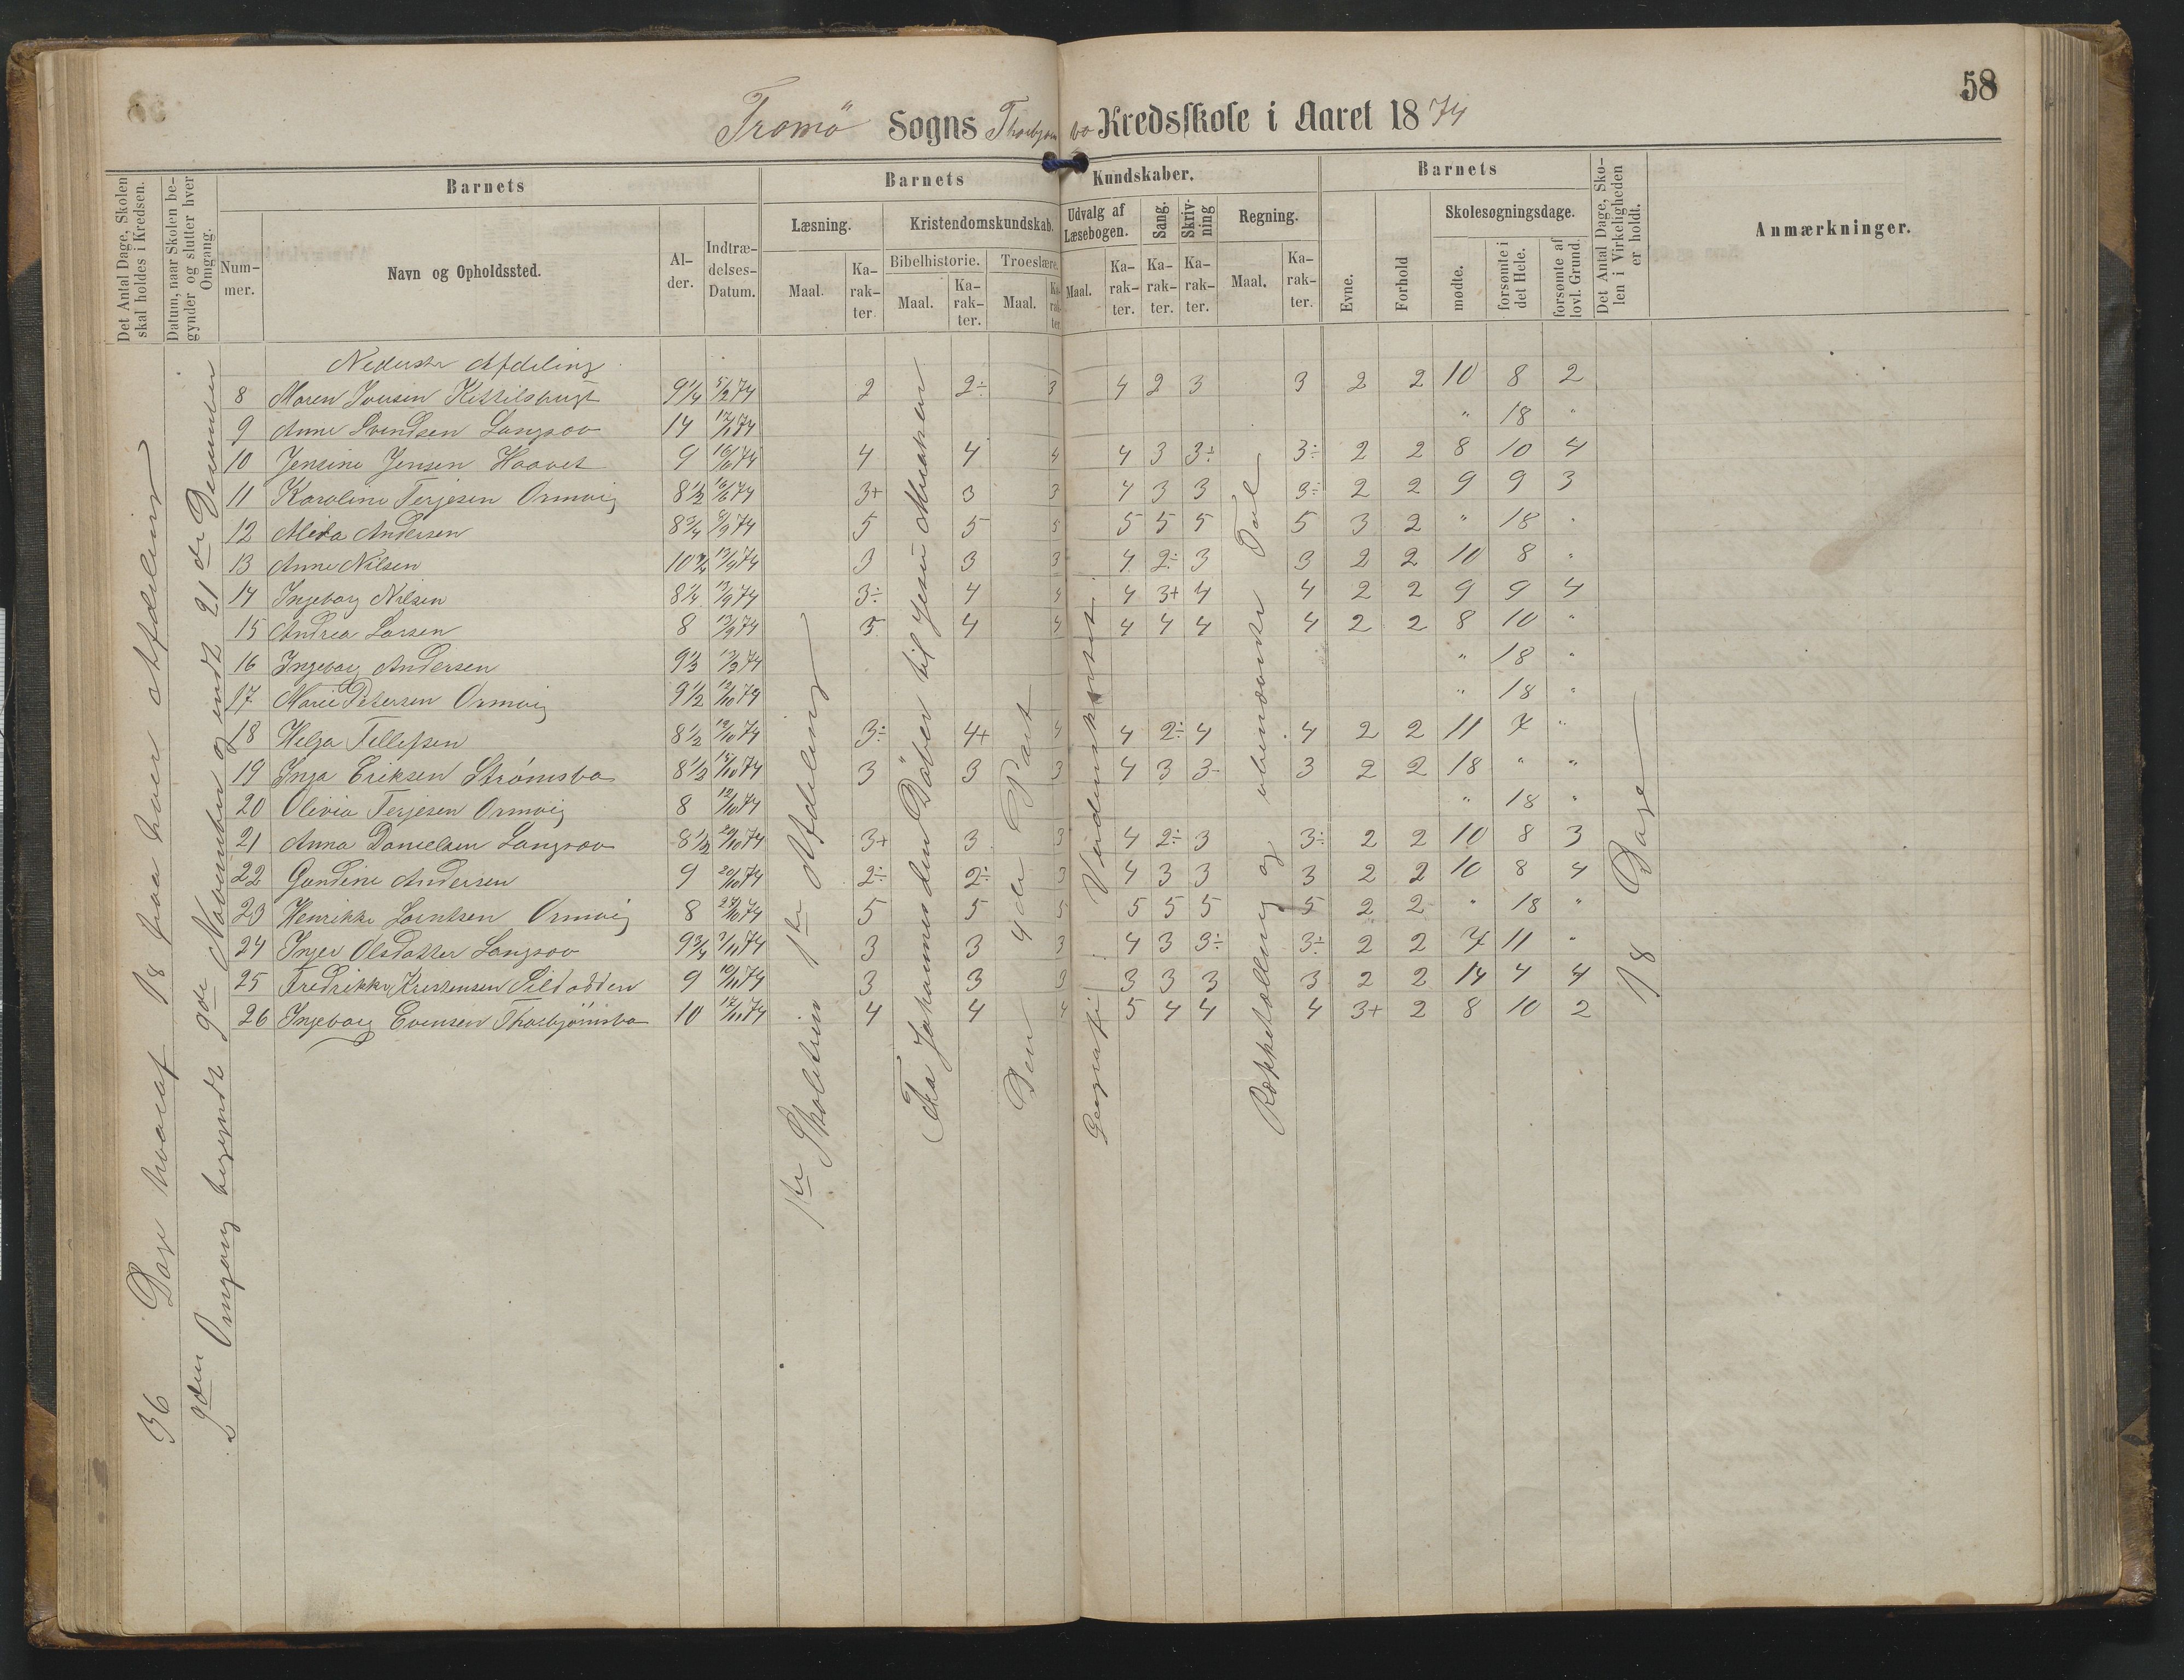 58
Tromö Sogns Thorbjørnsbo Kredsskole i Aaret 1874
Det Antal Dage, Skolen skal holdes i Kredsen.
Datum, naar Skolen begynder og slutter hver Omgang.
Barnets
Nummer.
Navn og Opholdssted.
Alder.
Indtrædelses-Datum.
Barnets Kundskaber.
Læsning.
Maal.
Karakter.
Kristendomskundskab.
Bibelhistorie.
Maal.
Karakter.
Troeslære.
Maal.
Karakter.
Udvalg af Læsebogen.
Maal.
Karakter.
Sang.
Karakter.
Skrivning
Karakter.
Regning.
Maal.
Karakter.
Barnets
Evne.
Forhold
Skolesøgningsdage.
mødte.
forsømte i det Hele.
forsømte af lovl. Grund.
Det Antal Dage, Skolen i Virkeligheden er holdt.
Anmærkninger.
36 Dage hvoraf 18 paa hver Afdeling
2den Omgang begyndt 9de November og endt 21de December
1ste Skoletrin 1ste Afdeling
Fra Johannes den Döber til Jesu Mirakler
Den 4de Part
Geografi: Verdenskortet
Rækketælling og ubenævnte Tal
18 Dage
Nederste Afdeling
8 Maren Iversen Kittilsbugt 9 1/4 5/2 74 2 2÷ 3 4 2 3 3 2 2 10 8 2
9 Anne Svendsen Langsæv 14 12/1 74 " 18 "
10 Jensine Jensen Haavet 9 16/6 74 4 4 4 4 3 3÷ 3÷ 2 2 8 10 4
11 Karoline Terjesen Ormvig 8 1/2 16/6 74 3+ 3 3 4 3 3 3÷ 2 2 9 9 3
12 Alida Andersen 8 3/4 9/9 74 5 5 5 5 5 5 5 3 2 " 18 "
13 Anne Nilsen 10 3/4 12/9 74 3 3 3 4 2÷ 3 3 2 2 10 8 "
14 Ingeborg Nilsen 8 1/4 12/9 74 3÷ 4 4 4 3+ 4 4 2 2 9 9 4
15 Andrea Larsen 8 12/9 74 5 4 4 4 4 4 4 2 2 8 10 "
16 Ingeborg Andersen 9 1/3 74 " 18 "
17 Marie Petersen Ormvig 9 1/2 12/10 74 " 18 "
18 Helga Tellefsen 8 1/2 12/10 74 3÷ 4+ 4 4 2÷ 4 4 2 2 11 7 "
19 Inga Eriksen Strömsbo 8 1/2 12/10 74 3 3 3 4 3 3- 3 2 2 18 " "
20 Olivia Terjesen Ormvig 8 12/10 74 " 18 "
21 Anna Danielsen Langsæv 8 1/2 20/10 74 3+ 3 3 4 2÷ 3 3÷ 2 2 10 8 3
22 Gundine Andersen 9 20/10 74 2÷ 2÷ 3 4 3 3 3 2 2 10 8 4
23 Henrikke Lorntsen Ormvig 8 /10 74 5 5 5 5 5 5 5 2 2 " 18 "
24 Inger Olsdatter Langsæv 9 3/4 /11 74 3 3 3 4 3 3÷ 3÷ 2 2 7 11 "
25 Fredrikke Kristensen Sildodden 9 10/11 74 3 3 3 3 3 3 3 2 2 14 4 4
26 Ingeborg Evensen Thorbjörnsbo 10 12/11 74 4 4 4 5 4 4 4 3+ 2 8 10 2